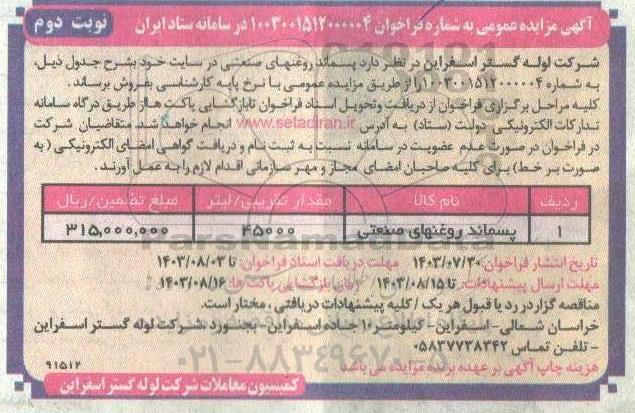 آگهی مزایده عمومی به شماره فراخوان ۱۰۰۳۰۰۱۵۱۲۰۰۰۰۰۴ در سامانه ستاد ایران
نوبت دوم
شرکت لوله گستر اسفراین در نظر دارد پسماند روغنهای صنعتی در سایت خود بشرح جدول ذیل،
به شماره ۱۰۰۳۰۰۱۵۱۲۰۰۰۰۰۴ را از طریق مزایده عمومی با نرخ پایه کارشناسی بفروش برساند.
کلیه مراحل برگزاری فراخوان از دریافت و تحویل اسناد فراخوان تا بازگشایی پاکت ها از طریق درگاه سامانه
تدارکات الکترونیکی دولت (ستاد) به آدرس www.setadiran.ir انجام خواهد شد. متقاضیان شرکت
در فراخوان در صورت عدم عضویت در سامانه نسبت به ثبت نام و دریافت گواهی امضای الکترونیکی (به
صورت بر خط) برای کلیه صاحبان امضای مجاز و مهر سازمانی اقدام لازم را به عمل آورند.
ردیف نام کالا مقدار تقریبی/لیتر مبلغ تضمین/ریال
۱ پسماند روغنهای صنعتی ۴۵۰۰۰ ۳۱۵,۰۰۰,۰۰۰
تاریخ انتشار فراخوان: ۱۴۰۳/۰۷/۳۰ مهلت دریافت اسناد فراخوان: تا ۱۴۰۳/۰۸/۰۳
مهلت ارسال پیشنهادات: تا ۱۴۰۳/۰۸/۱۵ زمان بازگشایی پاکت ها: ۱۴۰۳/۰۸/۱۶
مناقصه گزار در رد یا قبول هر یک / کلیه پیشنهادات دریافتی، مختار است.
خراسان شمالی - اسفراین - کیلومتر ۱۰ جاده اسفراین - بجنورد شرکت لوله گستر اسفراین
- تلفن تماس ۰۵۸۳۷۷۳۸۳۴۲
هزینه چاپ آگهی بر عهده برنده مزایده می باشد
۹۱۵۱۲
کمیسیون معاملات شرکت لوله گستر اسفراین
ParsNamadData
۰۲۱-۸۸۳۴۹۶۷۰-۵